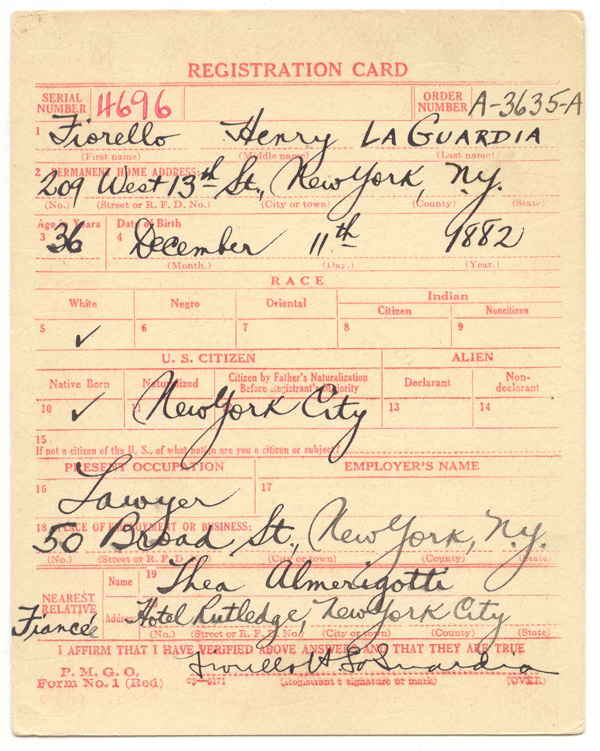 REGISTRATION CARD
SERIAL NUMBER 4696 ORDER NUMBER A-3635-A
1 Fiorello Henry LA GUARDIA
(First name) (Middle name) (Last name)
2 PERMANENT HOME ADDRESS:
209 West 13th St., New York, N.Y.
(No.) (Street or R. F. D. No.) (City or town) (County) (State)
Age in Years Date of Birth
3 36 4 December 11th 1882
(Month.) (Day.) (Year.)
RACE
White Negro Oriental Indian
Citizen Noncitizen
5 ✓ 6 7 8 9
U. S. CITIZEN ALIEN
Native Born Naturalized Citizen by Father's Naturalization Before Registrant's Majority Declarant Non-declarant
10 ✓ 11 New York City 13 14
15
If not a citizen of the U. S., of what nation are you a citizen or subject?
PRESENT OCCUPATION EMPLOYER'S NAME
16 Lawyer 17
18 PLACE OF EMPLOYMENT OR BUSINESS:
50 Broad St., New York, N.Y.
(No.) (Street or R. F. D. No.) (City or town) (County) (State)
NEAREST RELATIVE Name 19 Thea Almerigotti
Fianceé Address Hotel Rutledge, New York City
(No.) (Street or R. F. D. No.) (City or town) (County) (State)
I AFFIRM THAT I HAVE VERIFIED ABOVE ANSWERS AND THAT THEY ARE TRUE
P. M. G. O.
Form No. 1 (Red) Fiorello H La Guardia
(Registrant's signature or mark) (OVER)